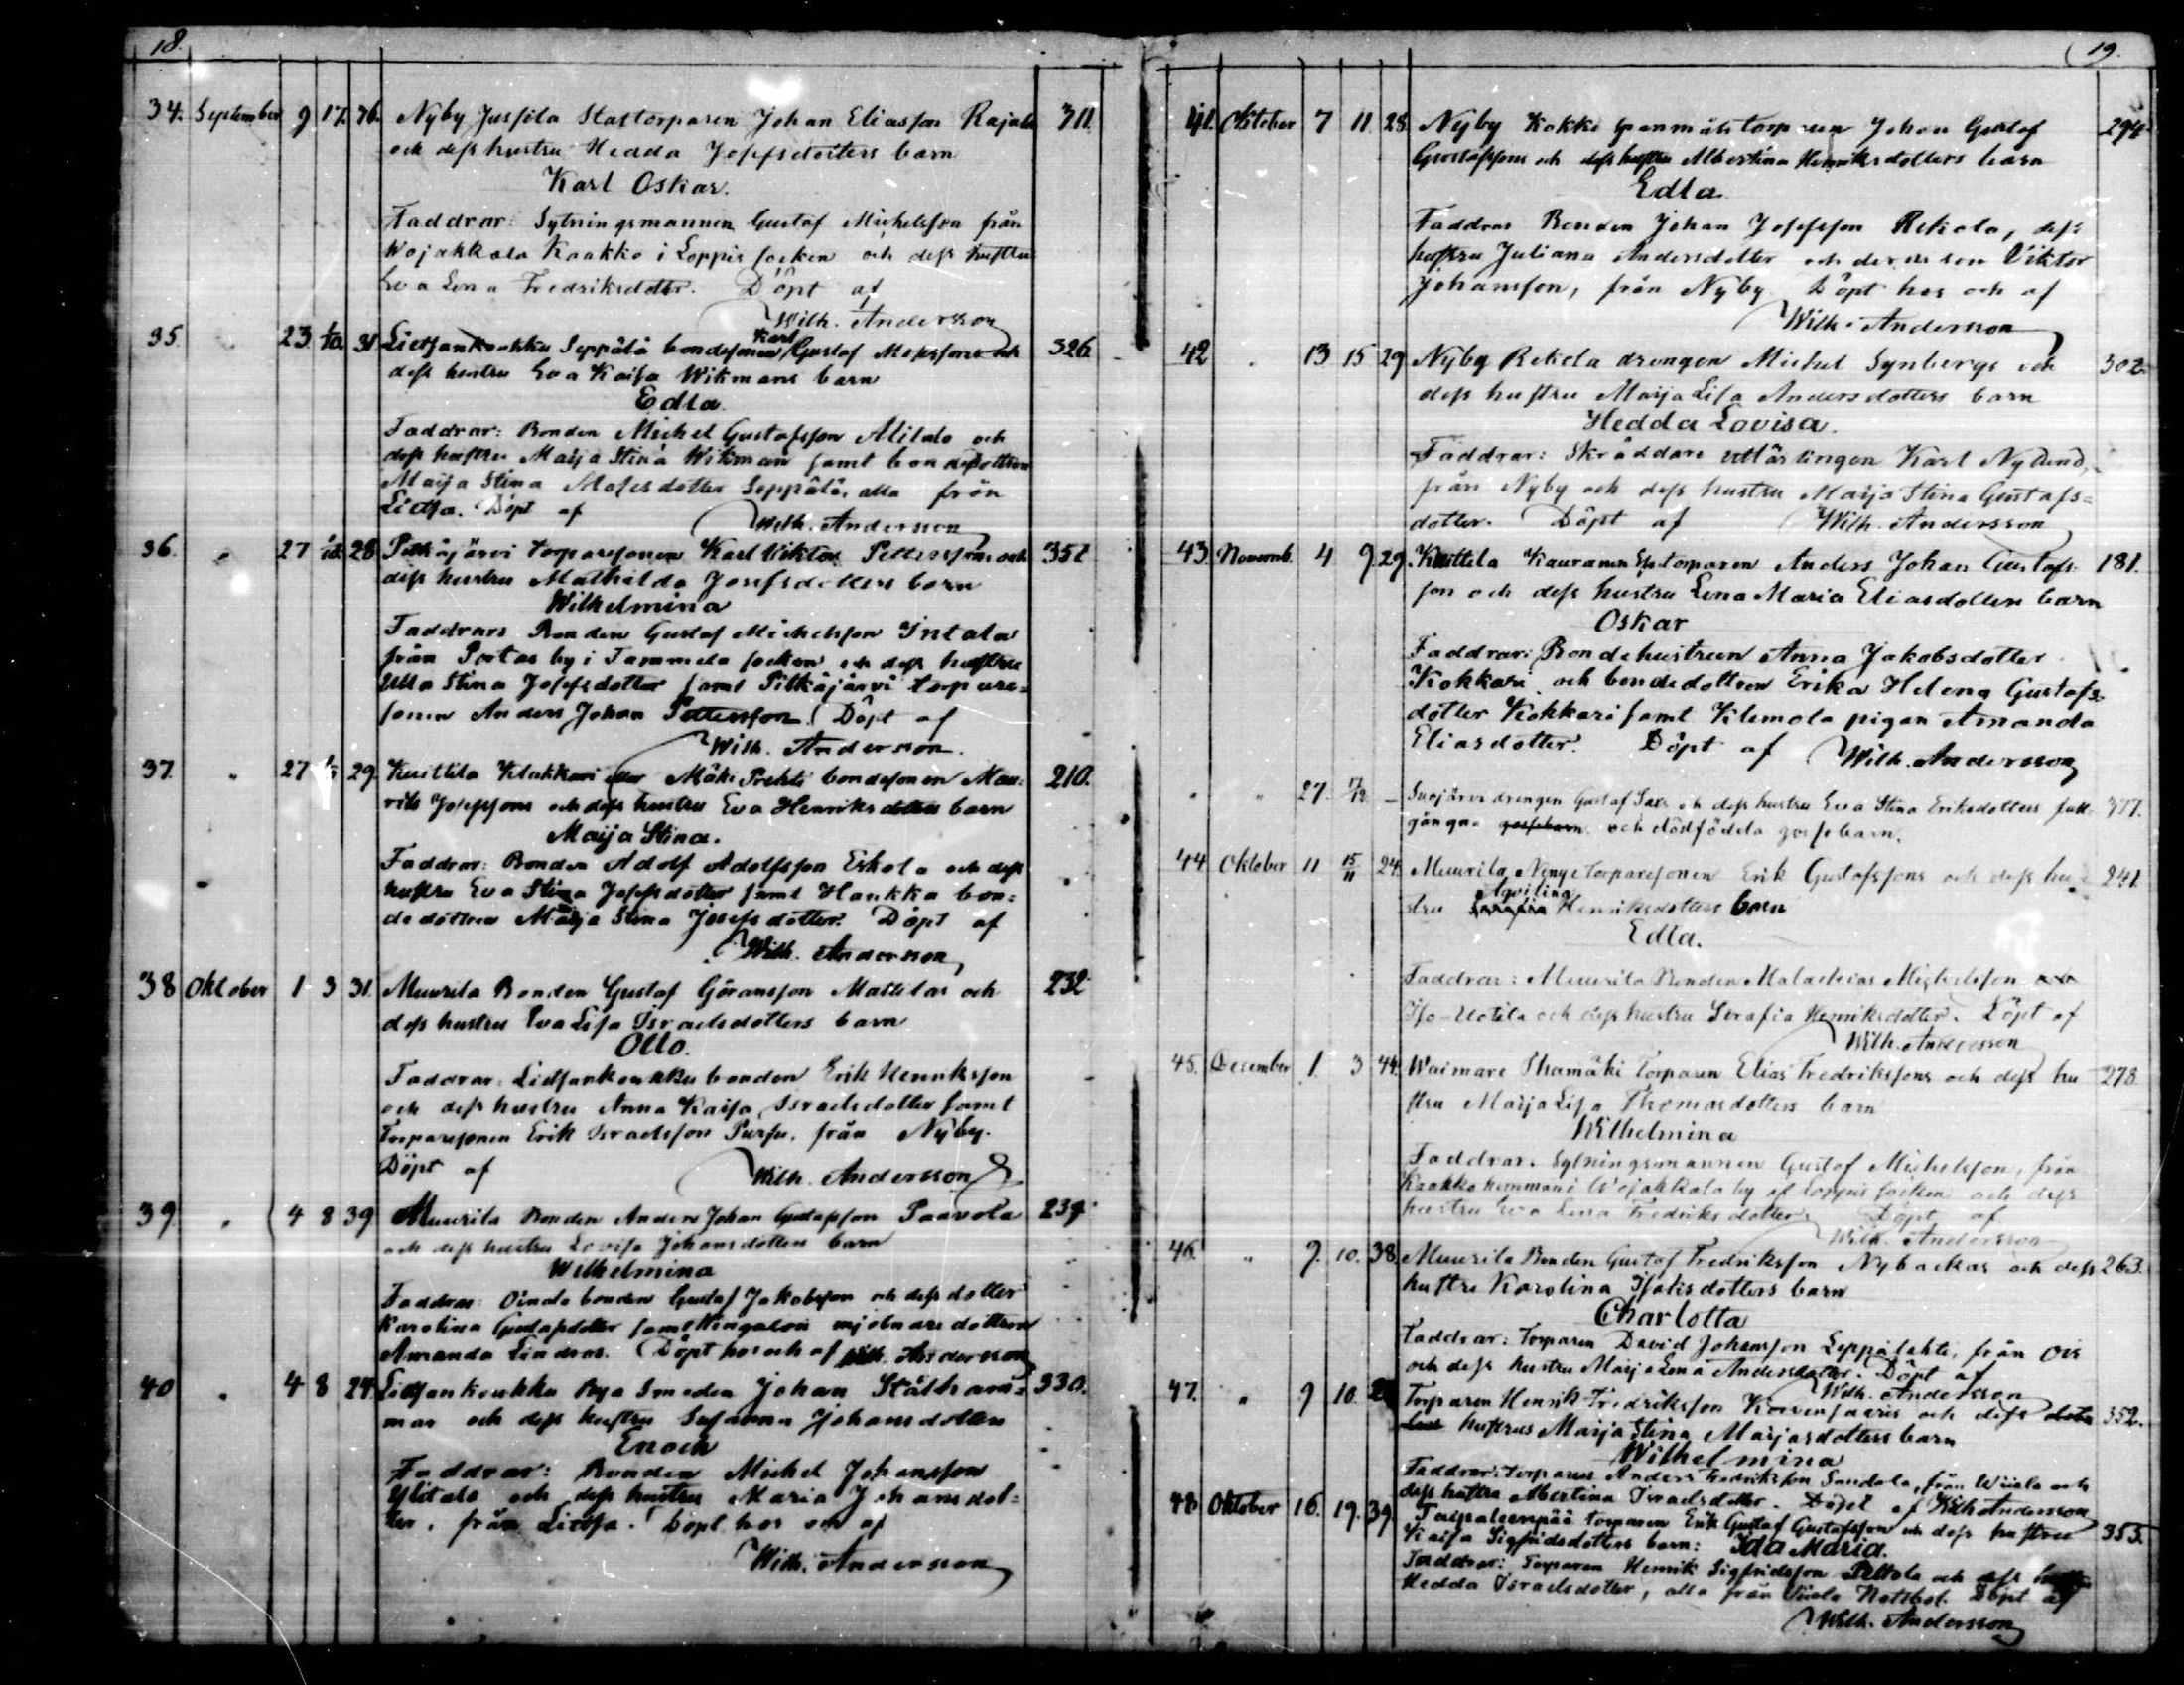 18.
34. September 9 17. 36. Nyby Jussila Stattorparen Johan Eliasson Rajala 311.
och dess hustru Hedda Josefsdotters barn
Karl Oskar.
Faddrar: Sytningsmannen Gustaf Michelsson från
Wojakkala Kaakko i Loppis socken och dess hustru
Eva Lena Fredriksdotter. Döpt af
Wilh. Andersson
35. 23. 31 Lietsankoukku Seppälä bondesonen Karl Gustaf och 326.
dess hustru Eva Kaisa Wikmans barn
Edla.
Faddrar: Bonden Michel Gustafsson Alitalo och
dess hustru Maija Stina Wikman samt bondedottren
Maija Stina Seppälä, alla från
Lietsa. Döpt af Wilh. Andersson
36. " 27 28 Pitkäjärvi torparesonen Karl Viktor Petterssons och 352
dess hustru Mathilda Josefsdotters barn
Wilhelmina
Faddrar: Bonden Gustaf Michelsson Intala
från Portas by i Tammela socken och dess hustru
Ulla Stina Josefsdotter samt Pitkäjärvi torpare-
sonen Anders Johan Pettersson. Döpt af
Wilh. Andersson.
37. " 27 29. Kuittila Mäki bondesonen Mau- 210.
rits Josefssons och dess hustru Eva Henriksdotters barn
Maija Stina.
Faddrar: Bonden Adolf Adolfsson Erkola och dess
hustru Eva Stina Josefsdotter samt Haukka bon-
dedottren Maija Stina Josefsdotter. Döpt af
Wilh. Andersson
38 Oktober 1 3 31. Muurila Bonden Gustaf Göransson Mattilas och 232
dess hustru Eva Lisa Israelsdotters barn
Otto.
Faddrar: Lietsankoukku bonden Erik Henriksson
och dess hustru Anna Kaisa Israelsdotter samt
Torparesonen Erik Israelsson Pursu, från Nyby.
Döpt af Wilh. Andersson
39. " 4 8 39 Muurila Bonden Anders Johan Gustafsson Paavola 239
och dess hustru Lovisa Johansdotters barn
Wilhelmina
Faddrar: Oinala bonden Gustaf Jakobsson och dess dotter
Karolina Gustafsdotter samt mjölnaredottren
Amanda Lindros. Döpt hos och af Wilh. Andersson
40 " 4 8 24. Lietsankoukku Bya Smeden Johan Stålham- 330.
mar och dess hustru Susanna Johansdotters
Enoch
Faddrar: Bonden Michel Johansson
Ylitalo och dess hustru Maria Johansdot-
ter, från Lietsa. Döpt hos och af
Wilh. Andersson
19.
41. Oktober 7 11 28 Nyby Kokki Johan Gustaf 294
Gustafssons och dess hustru Albertina Henriksdotters barn
Edla
Faddrar Bonden Johan Josefsson Rekola, dess
hustru Juliana Andersdotter och deras son Viktor
Johansson, från Nyby Döpt hos och af
Wilh. Andersson
42 " 13 15 29 Nyby Rekola drengen Michel Synbergs och 302.
dess hustru Maija Lisa Andersdotters barn
Hedda Lovisa.
Faddrar: Skräddare Karl Nylund,
från Nyby och dess hustru Maija Stina Gustafs-
dotter. Döpt af Wilh. Andersson
43. Novemb. 4 9 29. Kuittila torparen Anders Johan Gustafs- 181.
son och dess hustru Lena Maria Eliasdotters barn
Oskar
Faddrar: Bondehustrun Anna Jakobsdotter
Kokkari och bondedottren Erika Helena Gustafs-
dotter Kokkari samt Klemola pigan Amanda
Eliasdotter. Döpt af Wilh. Andersson
" " 27. Suojärvi drengen Gustaf Sars och dess hustru Eva Stina Eriksdotters full- 377.
gångna gossebarn och dödfödda gossebarn.
44 Oktober 11 15/11 24. Muurila torparesonen Erik Gustafssons och dess hu- 241.
stru Henriksdotters barn
Edla.
Faddrar: Muurila Bonden Malachias Michelsson
Iso-Uotila och dess hustru Serafia Henriksdotter. Döpt af
Wilh. Andersson
45. December 1. 3 44. Waimare Torparen Elias Fredrikssons och dess hu 278
stru Maija Lisa Thomasdotters barn
Wilhelmina
Faddrar: Sytningsmannen Gustaf Michelsson, från
Kaakko hemman i Wojakkala by af Loppis socken och dess
hustru Eva Lena Fredriksdotter. Döpt af
Wilh. Andersson
46. " 9. 10. 38. Muurila Bonden Gustaf Fredriksson Nybackas och dess 263.
hustru Karolina Isaksdotters barn
Charlotta
Faddrar: Torparen David Johansson Leppälahti, från Ois
och dess hustru Maija Lena Andersdotter. Döpt af
Wilh. Andersson
47. " 9 10. Torparen Henrik Fredriksson och dess 352.
hustrus Maija Stina barn
Wilhelmina
Faddrar: Torparen Anders Fredriksson Sandala, från Wiiala och
dess hustru Albertina Israelsdotter. Döpt af Wilh Andersson
48. Oktober 16. 19. 39. torparen Erik Gustaf Gustafsson och dess hustru 355.
Kaisa Sigfridsdotters barn: Ida Maria.
Faddrar: Torparen Henrik Sigfridsson Peltola och dess
Hedda Israelsdotter, alla från Döpt af
Wilh. Andersson